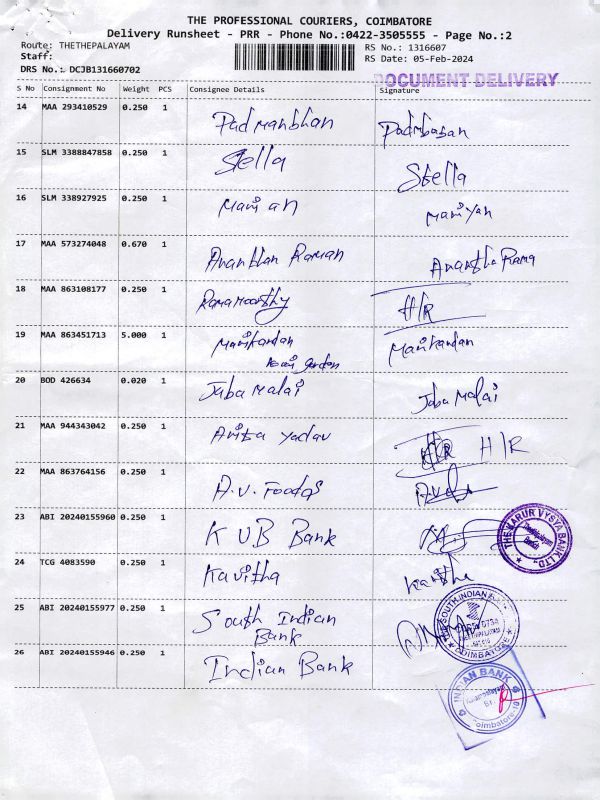 THE PROFESSIONAL COURIERS, COIMBATORE
Delivery Runsheet - PRR - Phone No.:0422-3505555 - Page No.:2
Route: THETHEPALAYAM RS No.: 1316607
Staff: RS Date: 05-Feb-2024
DRS No.: DCJB131660702
DOCUMENT DELIVERY
S No Consignment No Weight PCS Consignee Details Signature
14 MAA 293410529 0.250 1 Padmanbhan Padmbasan
15 SLM 3388847858 0.250 1 Stella Stella
16 SLM 338927925 0.250 1 Mani an Maniyan
17 MAA 573274048 0.670 1 Ananthan Raman Anantha Rama
18 MAA 863108177 0.250 1 Ramamoorthy H/R
19 MAA 863451713 5.000 1 Manikandan Manikandan
20 BOD 426634 0.020 1 Jaba Malai Jaba Malai
21 MAA 944343042 0.250 1 Anita Yadav H/R
22 MAA 863764156 0.250 1 A.V. Foods
23 ABI 20240155960 0.250 1 KUB Bank
THE KARUR VYSYA BANK LTD.
24 TCG 4083590 0.250 1 Kavitha
25 ABI 20240155977 0.250 1 South Indian
Bank
THE SOUTH INDIAN
COIMBATORE
26 ABI 20240155946 0.250 1 Indian Bank
INDIAN BANK
Coimbatore-10